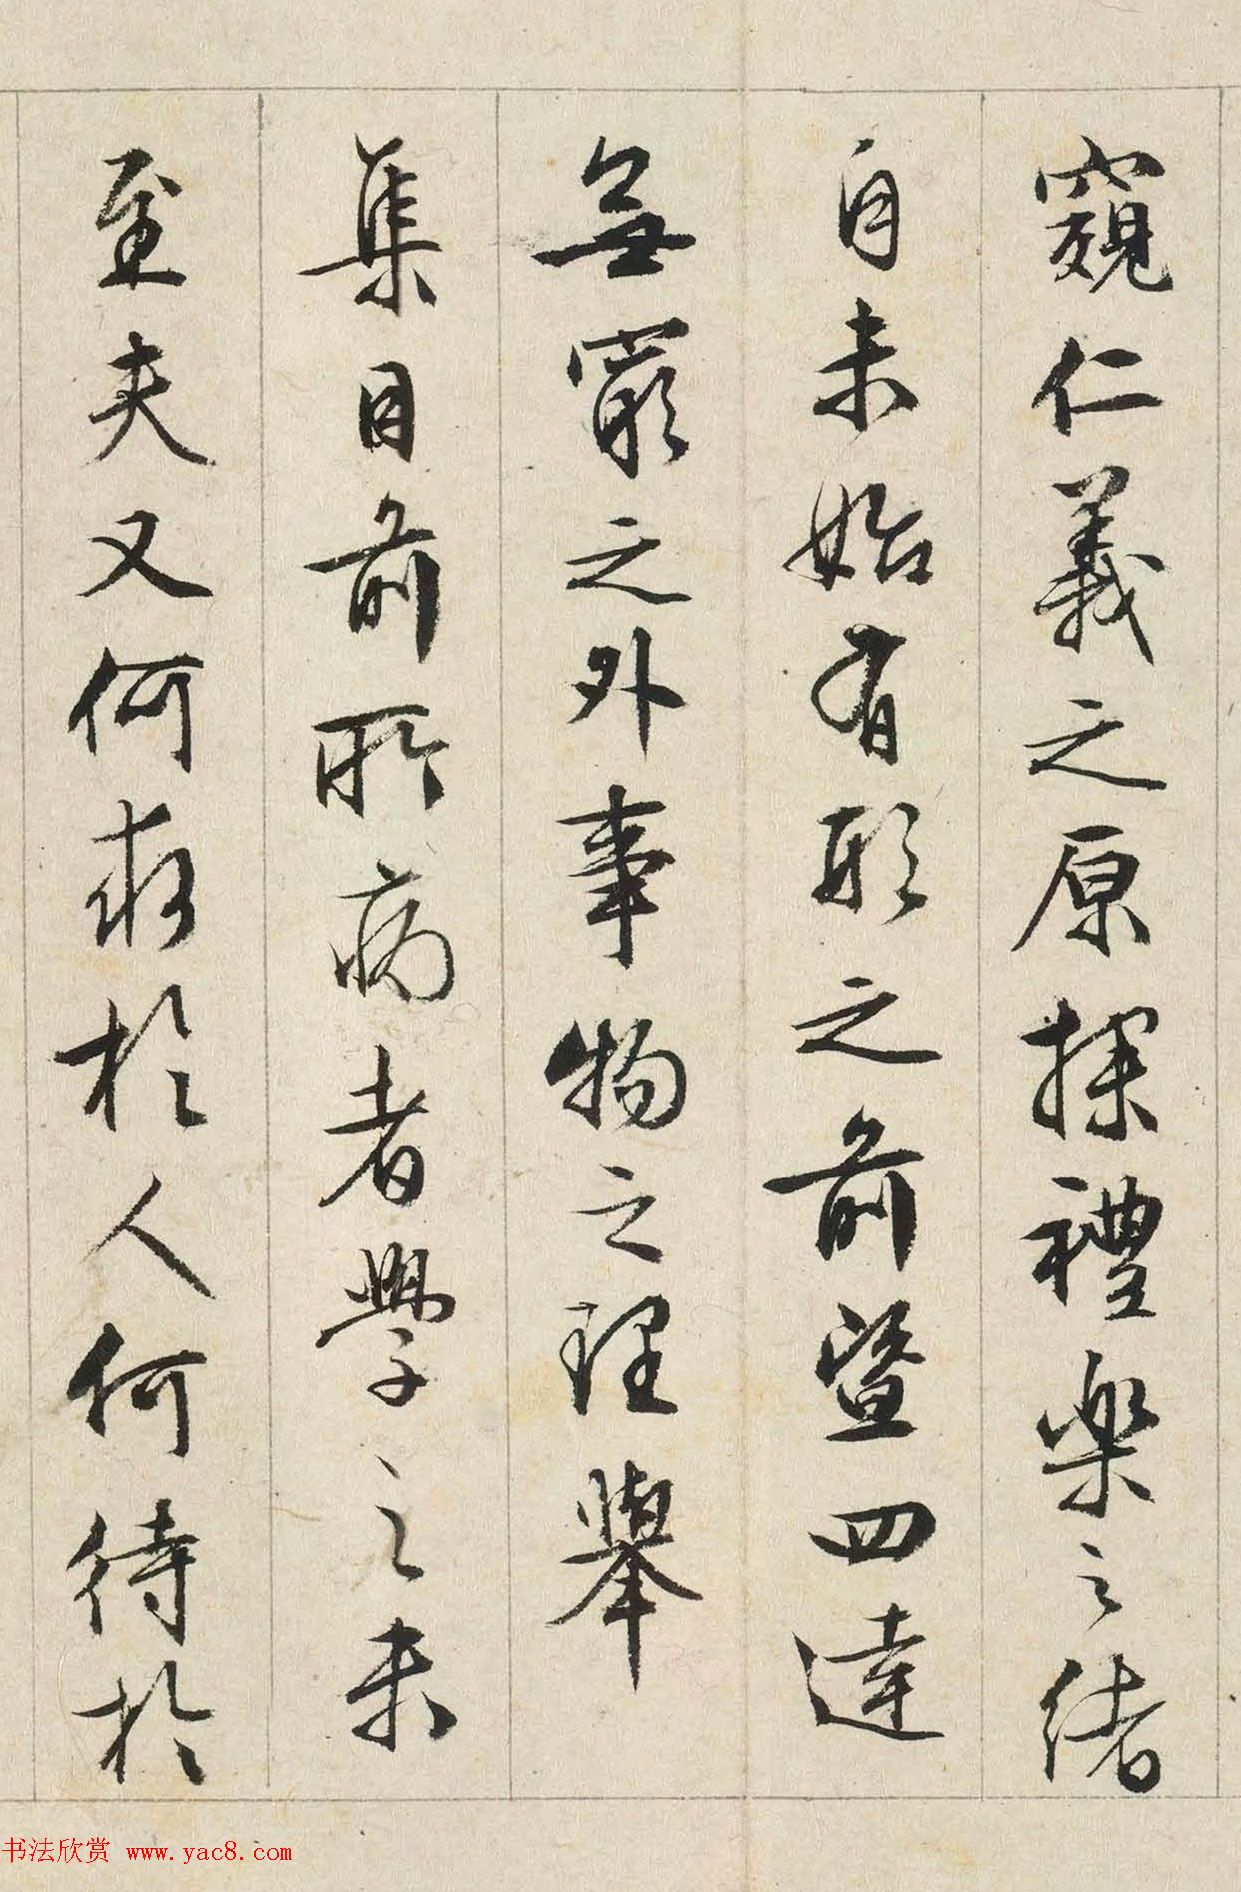 窺仁義之原探禮樂之緒
自未始有形之前暨四達
無窮之外事物之理舉
集目前所病者學之未
至夫又何求於人何待於
书法欣赏 www.yac8.com